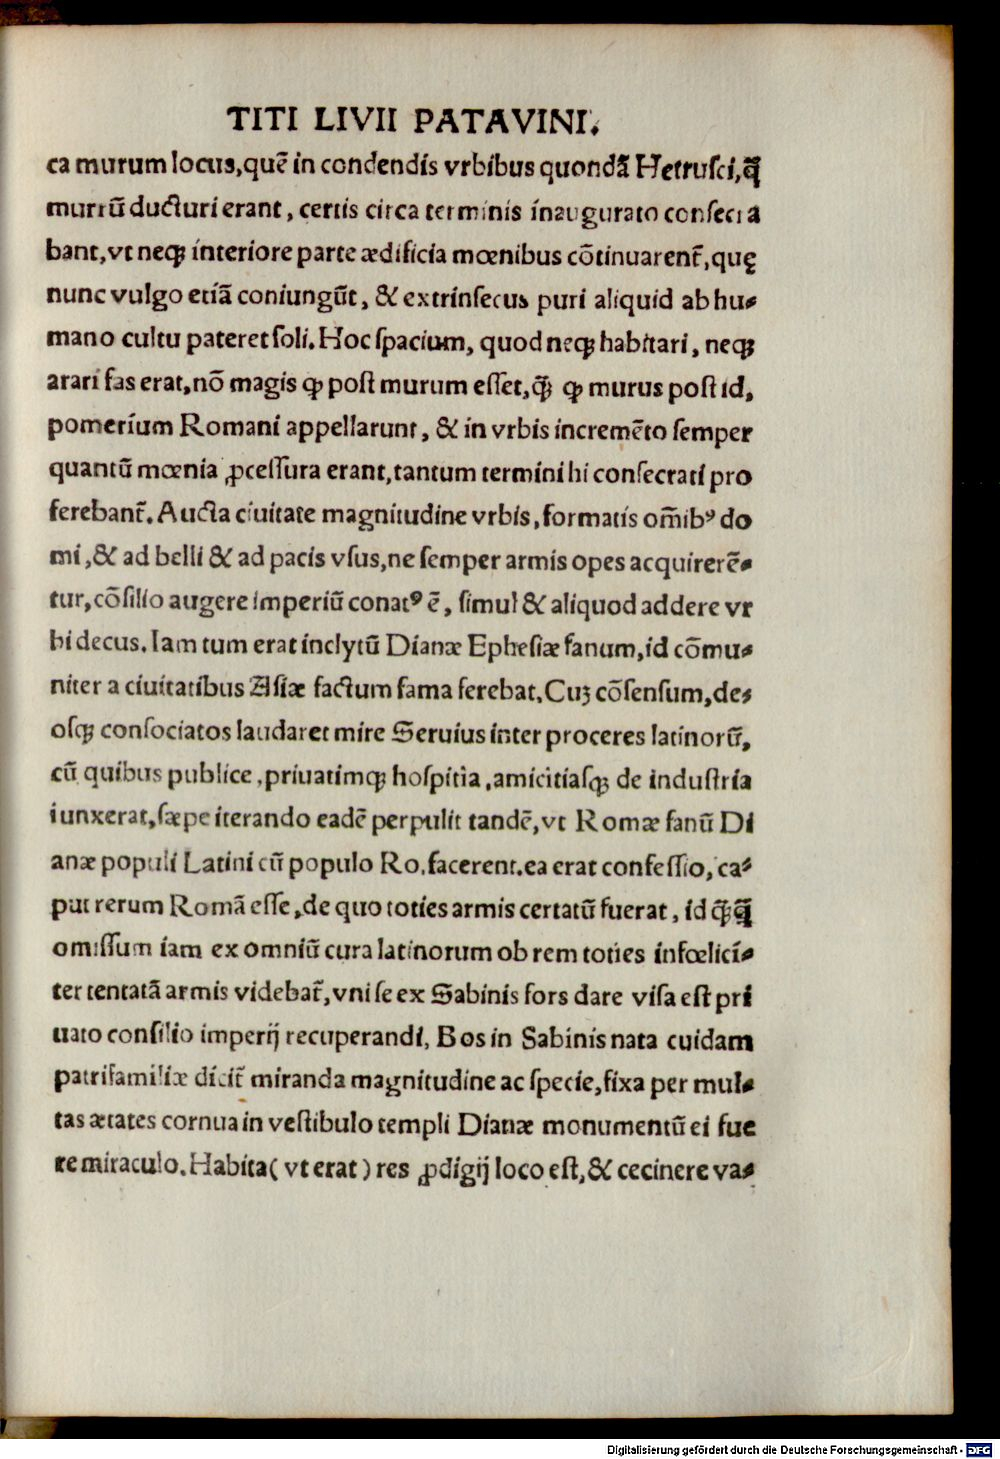 TITI LIVII PATAVINI.
ca murum locus,quē in condendis vrbibus quondā Hetrusci,q̄
murrū ducturi erant, certis circa terminis inaugurato consecra
bant,vt neqꝫ interiore parte ædificia mœnibus cōtinuarent̃,quę
nunc vulgo etiā coniungūt, & extrinsecus puri aliquid ab hu⸗
mano cultu pateret soli.Hoc spacium, quod neqꝫ habitari, neqꝫ
arari fas erat,nō magis ꝙ post murum esset,q̃ꝫ ꝙ murus post id,
pomerium Romani appellarunt, & in vrbis incremēto semper
quantū mœnia ꝓcessura erant,tantum termini hi consecrati pro
ferebant̃. Aucta ciuitate magnitudine vrbis,formatis om̄ibꝰ do
mi,& ad belli & ad pacis vsus,ne semper armis opes acquirerē⸗
tur,cōsilio augere imperiū conatꝰ ē, simul & aliquod addere vr
bi decus. Iam tum erat inclytū Dianæ Ephesiæ fanum,id cōmu⸗
niter a ciuitatibus Asiæ factum fama ferebat.Cuꝫ cōsensum,de⸗
osqꝫ consociatos laudaret mire Seruius inter proceres latinorū,
cū quibus publice ,priuatimqꝫ hospitia ,amicitiasqꝫ de industria
iunxerat,sæpe iterando eadē perpulit tandē,vt Romæ fanū Di
anæ populi Latini cū populo Ro.facerent.ea erat confessio, ca⸗
put rerum Romā esse,de quo toties armis certatū fuerat, id q̃ꝫq̄
omissum iam ex omniū cura latinorum ob rem toties infœlici⸗
ter tentatā armis videbat̃,vni se ex Sabinis fors dare visa est pri
uato consilio imperij recuperandi, Bos in Sabinis nata cuidam
patrifamiliæ dicit̃ miranda magnitudine ac specie,fixa per mul⸗
tas ætates cornua in vestibulo templi Dianæ monumentū ei fue
re miraculo. Habita( vt erat ) res ꝓdigij loco est,& cecinere va⸗
Digitalisierung gefördert durch die Deutsche Forschungsgemeinschaft - DFG